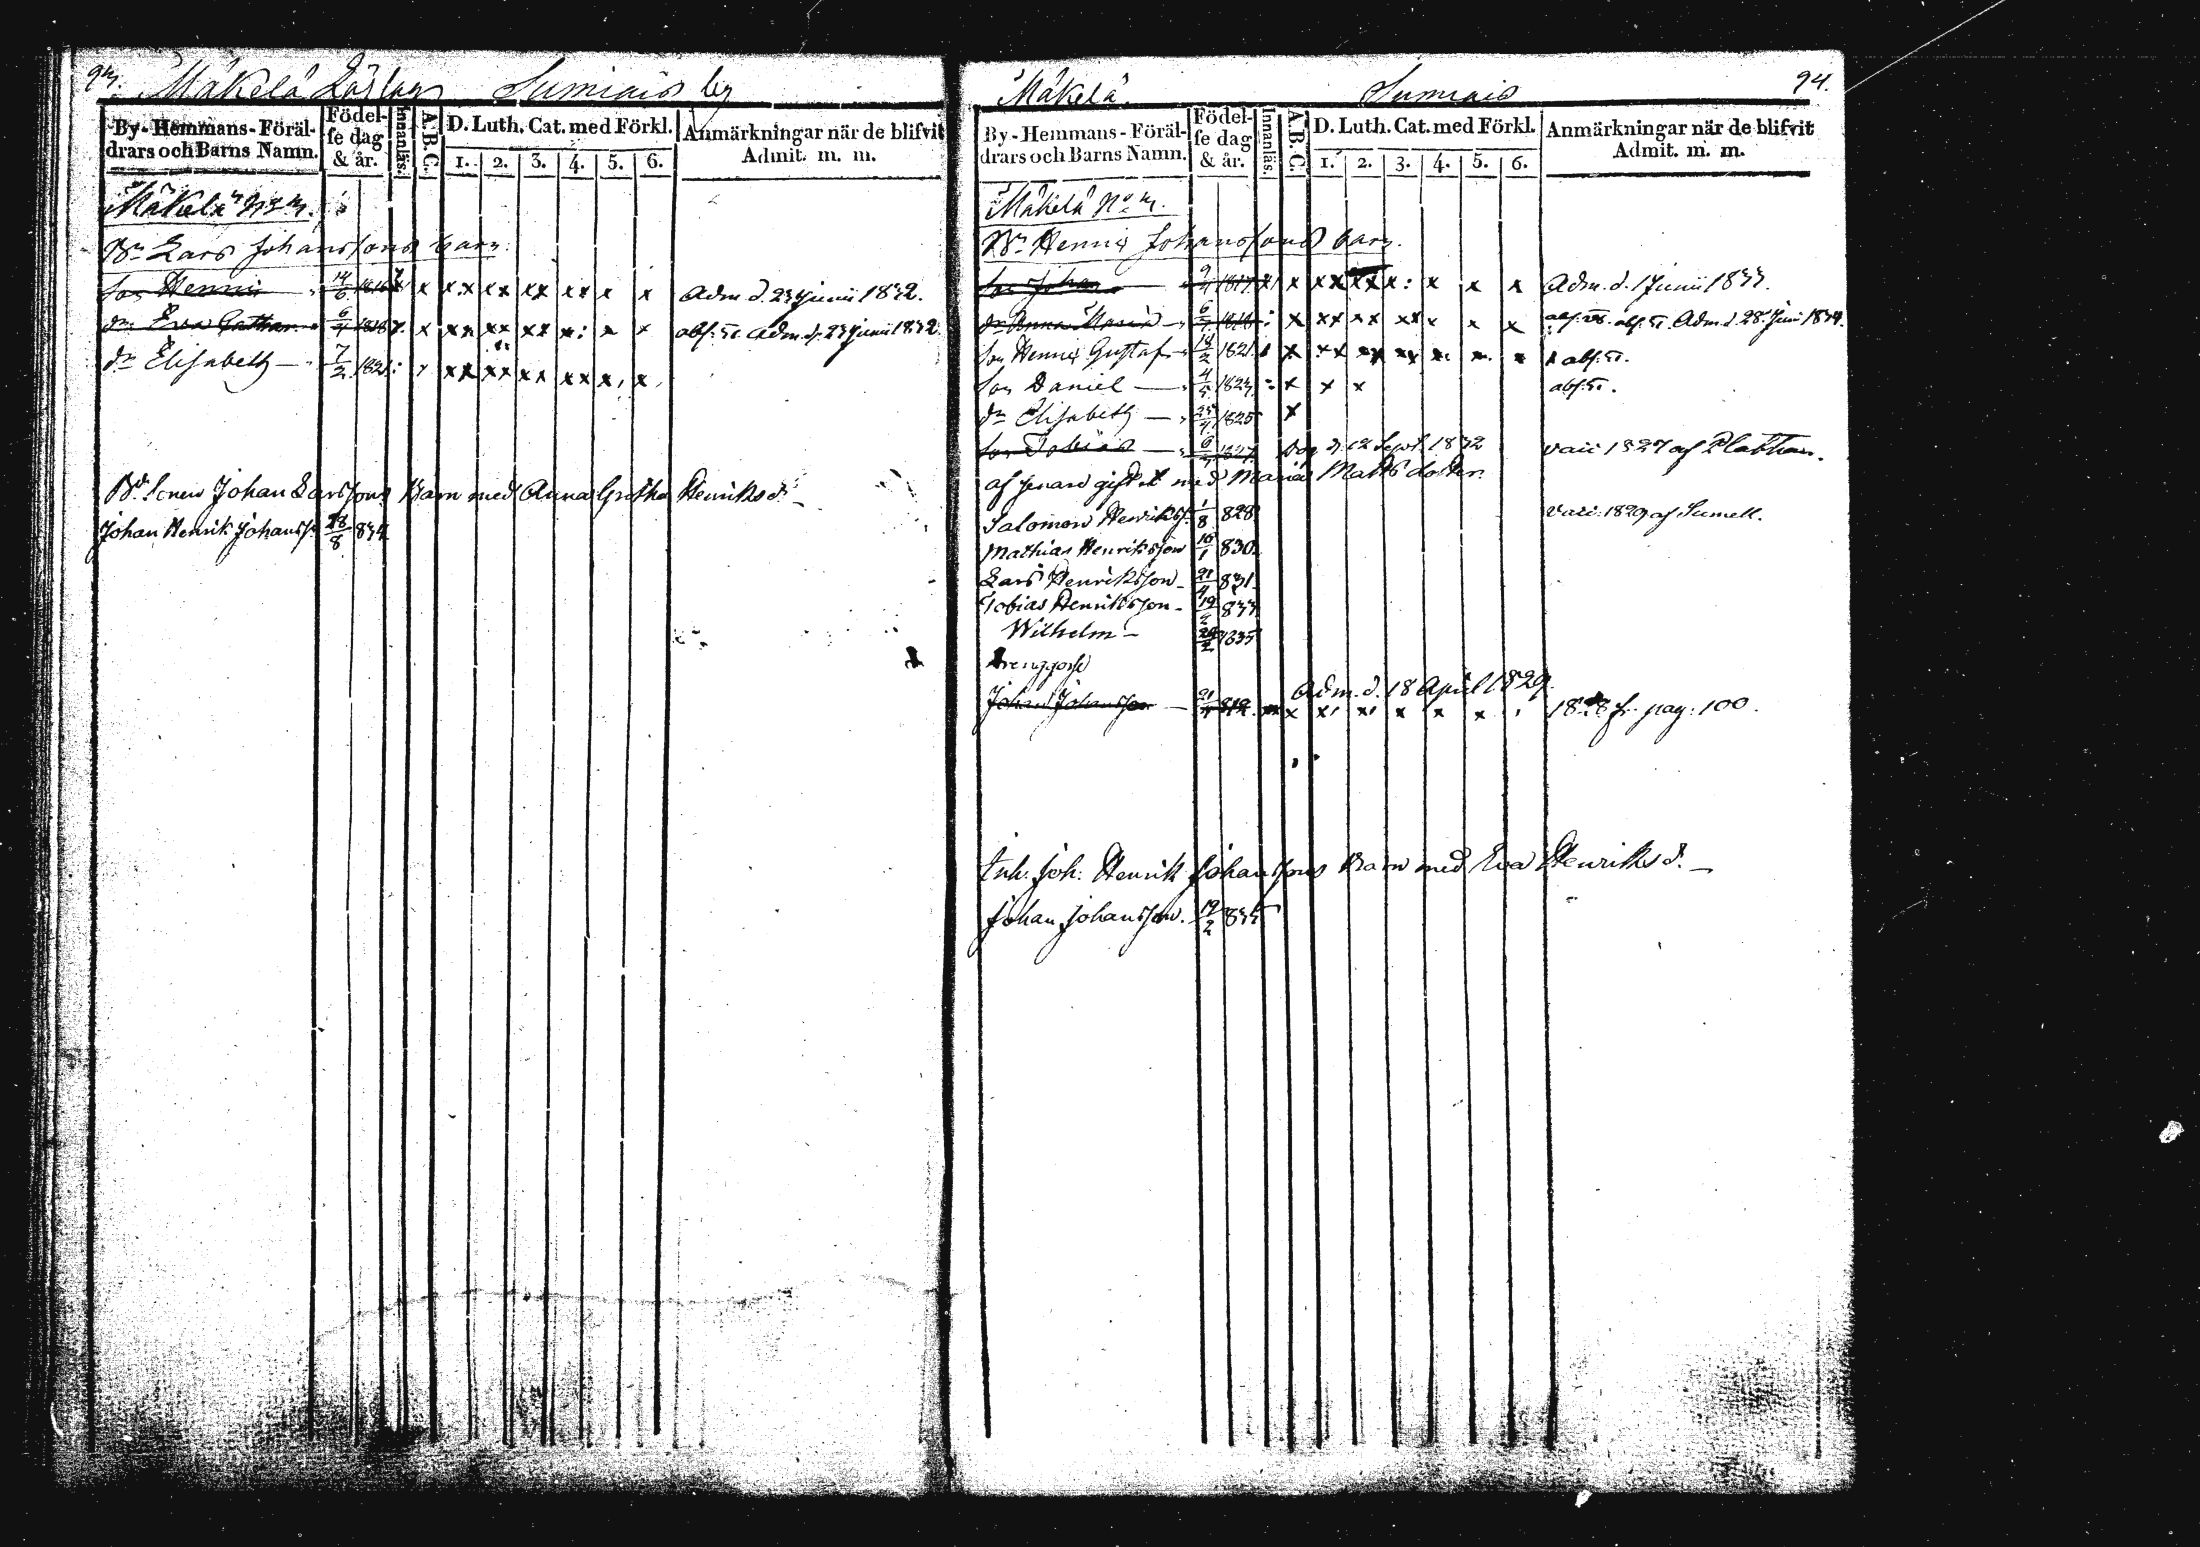 93. Mäkelä Löslag Sumiais by
By-Hemmans-Föräl-
drars och Barns Namn.
Födel-
se dag
& år.
Innanläs.
A.B.C.
D. Luth. Cat. med Förkl.
1. 2. 3. 4. 5. 6.
Anmärkningar när de blifvit
Admit. m. m.
Mäkelä No 3.
Bn Lars Johanssons barn.
Son Henric 14/6 1816 x x x x x x x x x x x x Adm. d. 23 Junii 1832.
dr. Eva Cathar. 6/4 1818 x x x x x x x x x: x x abs. Adm. d. 23 Junii 1832
dr Elisabeth 7/2 1821 : x x x x x x x x x x, x,
Bd. Sonens Johan Larssons Barn med Anna Gretha Henriksd:
Johan Henrik Johanss. 28/8 834
Mäkelä. Sumiais 94.
By-Hemmans-Föräl-
drars och Barns Namn.
Födel-
se dag
& år.
Innanläs.
A.B.C.
D. Luth. Cat. med Förkl.
1. 2. 3. 4. 5. 6.
Anmärkningar när de blifvit
Admit. m. m.
Mäkelä No 3.
Bn Henric Johanssons barn.
Son Johan 9/4 1817 x x x x x x x : x x x Adm. d. 1 Junii 1833.
dr Anna Maria 6/4 1818 : x x x x x x x x x x abs. Adm. d. 28 Juni 1834.
Son Henric Gustaf 18/2 1821 x x x x x x x x x x x abs.
Son Daniel 4/5 1823 : x x x abs.
dr Elisabeth 25/4 1825 x
Son Tobias 6/4 1827 Dog d. 12 Sept. 1832 vacc 1827 af Plathan.
af senare giftet med Maria Matts dotter.
Salomon Henrikss. 1/8 828 vacc. 1829 af Sumell.
Mathias Henriksson 16/1 830
Lars Henriksson 21/4 831
Tobias Henriksson 19/2 833
Wilhelm 24/2 1835
Drenggosse
Adm. d. 18 April 1829.
Johan Johansson 21/4 812 x x x x x x x 1828 fr. pag: 100.
Inh. Joh: Henrik Johanssons Barn med Eva Henriksd.
Johan Johansson. 19/2 835